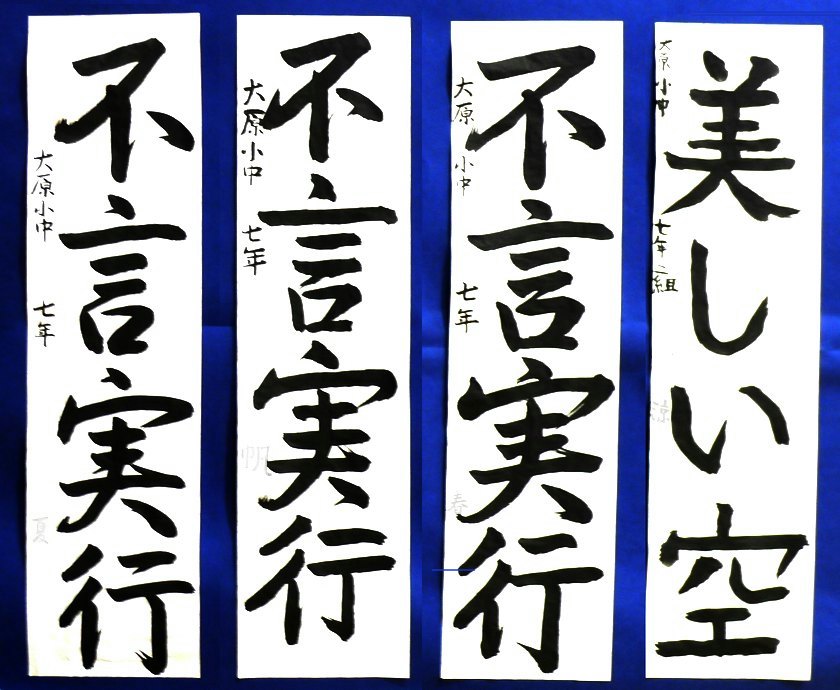 美しい空
大原小中 七年二組 涼
不言実行
大原小中 七年 春
不言実行
大原小中 七年 帆
不言実行
大原小中 七年 夏